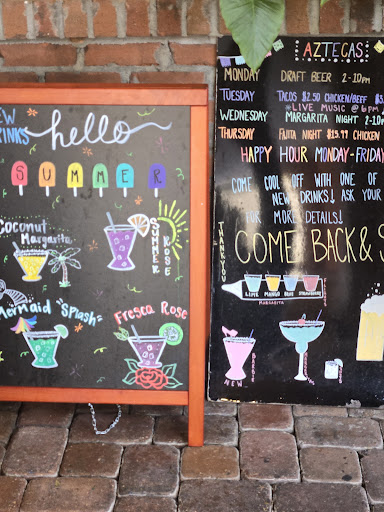 hello
SUMMER
Coconut
Margarita
SUMMER
ROSE
Mermaid "Splash"
Fresca Rose
AZTECAS
MONDAY DRAFT BEER 2-10pm
TUESDAY TACOS $2.50 CHICKEN/BEEF
LIVE MUSIC @ 6pm
WEDNESDAY MARGARITA NIGHT 2-10
THURSDAY FAJITA NIGHT $15.99 CHICKEN
HAPPY HOUR MONDAY-FRIDAY
COME COOL OFF WITH ONE OF
NEW DRINKS! ASK US
FOR MORE DETAILS!
THANK YOU
COME BACK &
LIME MANGO BLUE STRAWBERRY
MARGARITA
NEW
BARBIE